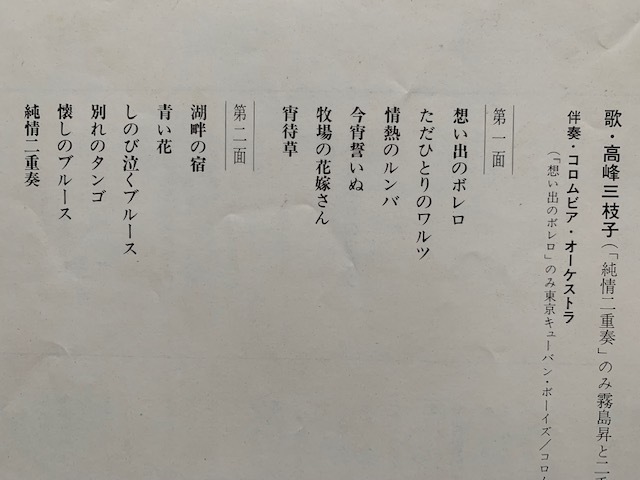 歌・高峰三枝子（「純情二重奏」のみ霧島昇と二
伴奏・コロムビア・オーケストラ
（「想い出のボレロ」のみ東京キューバン・ボーイズ／コロ
第一面
想い出のボレロ
ただひとりのワルツ
情熱のルンバ
今宵誓いぬ
牧場の花嫁さん
宵待草
第二面
湖畔の宿
青い花
しのび泣くブルース
別れのタンゴ
懐しのブルース
純情二重奏